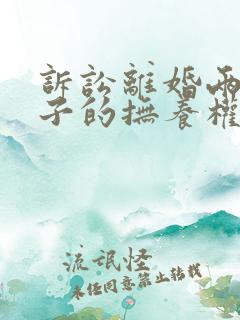 訴訟離婚両
子的撫養權
流氓怪
未任同意禁止转载